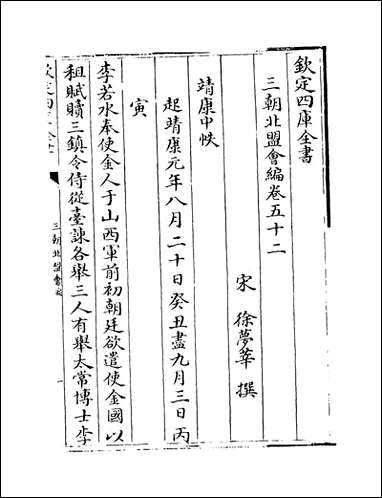 欽定四庫全書
三朝北盟會編卷五十二
宋 徐夢莘 撰
靖康中帙
起靖康元年八月二十日癸丑盡九月三日丙
寅
李若水奉使金人于山西軍前初朝廷欲遣使金國以
租賦贖三鎮令侍從臺諫各舉三人有舉太常博士李
三朝北盟會編